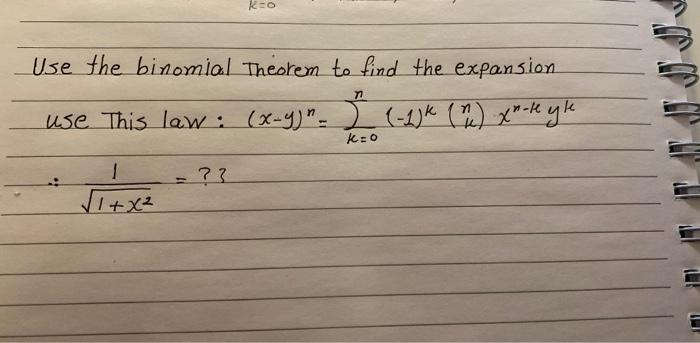 k=0
Use the binomial Theorem to find the expansion
use This law : (x-y)^n = \sum_{k=0}^{n} (-1)^k \binom{n}{k} x^{n-k} y^k
∴ \frac{1}{\sqrt{1+x^2}} = ??